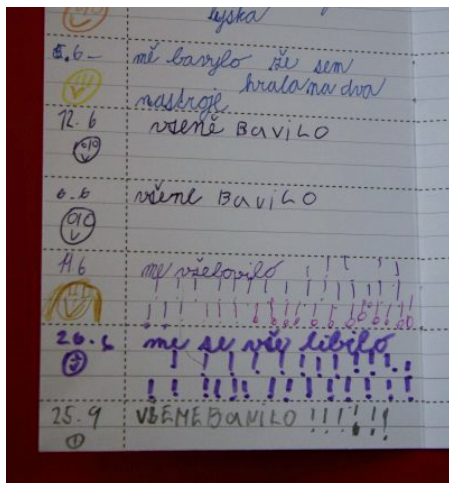 lyska
5.6- mě bavylo že sem
hrala na dva
nastroje
12.6 všeně BaViLO
6.6 všeme BaViLO
11.6 me všelovilo ! ! ! ! !
! ! ! ! ! ! ! ! ! ! ! !
! ! ! ! ! ! ! ! ! ! ! ! ! !
26.6 me se všy libilo
! ! ! ! ! ! ! ! ! ! !
! ! ! ! ! ! ! ! ! ! ! ! !
25.9 VŠEMEBaVILO !!!!!!